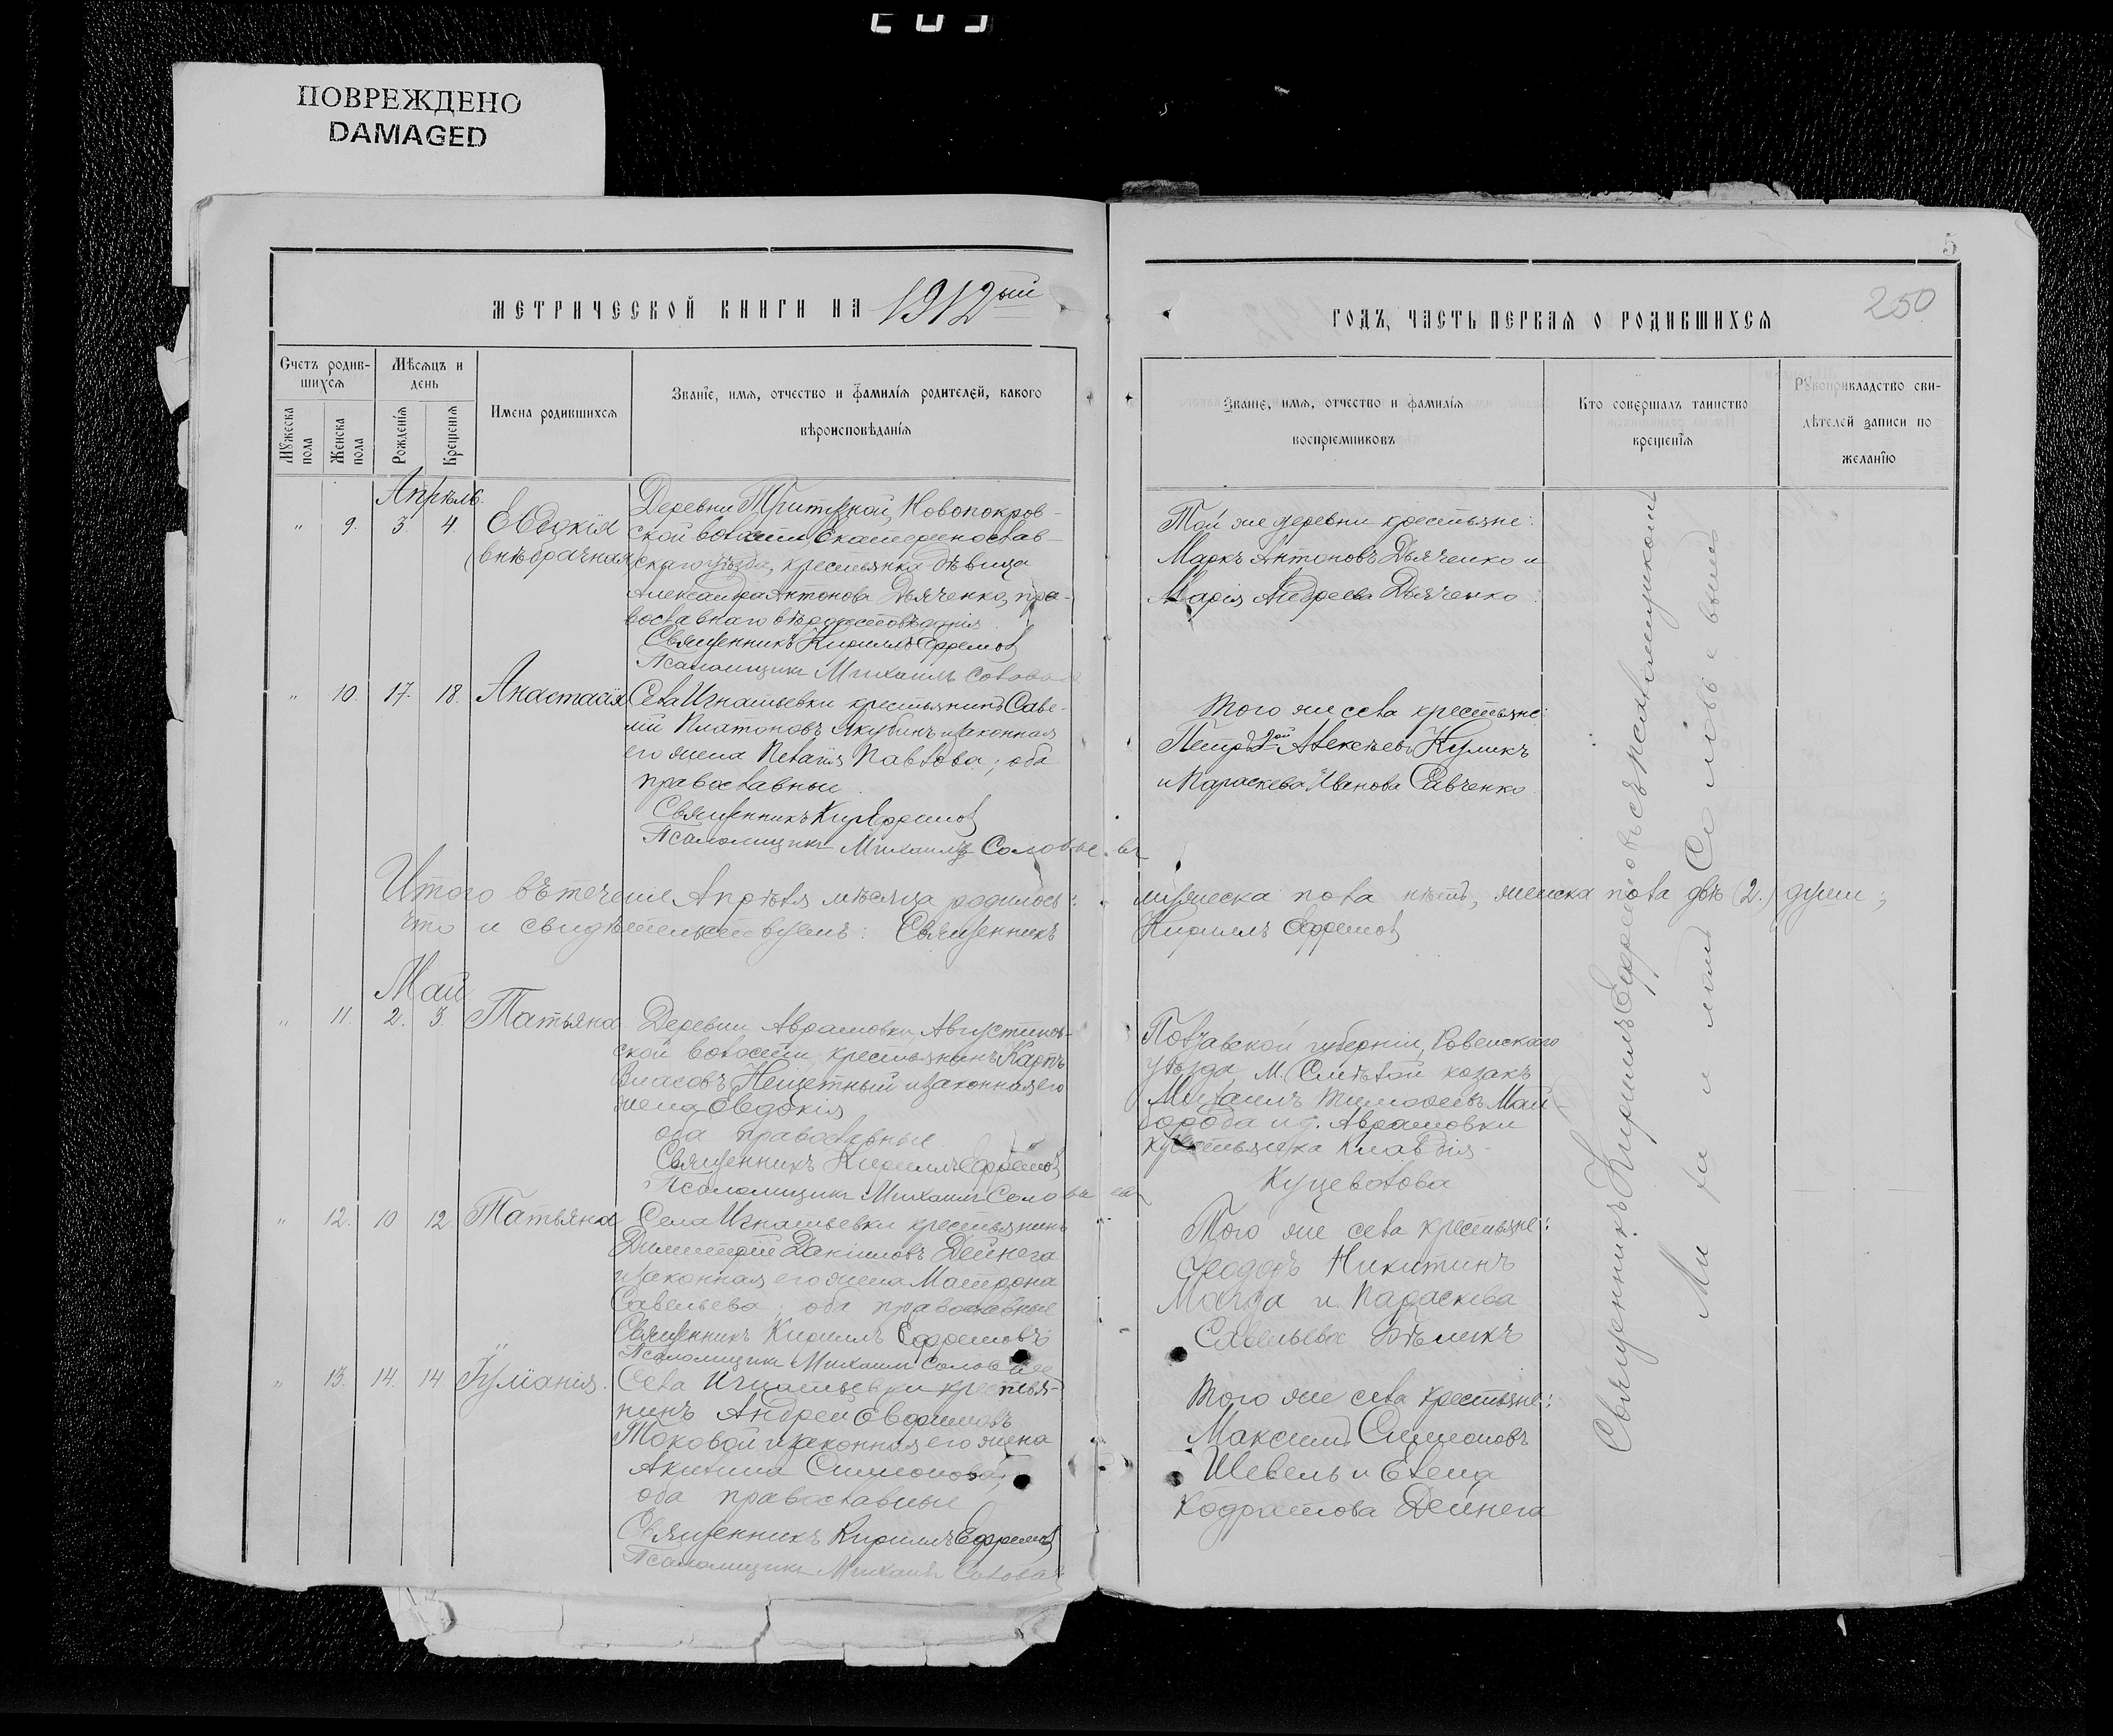 ПОВРЕЖДЕНО
DAMAGED
5
250
МЕТРИЧЕСКОЙ КНИГИ НА 1912ый
ГОДЪ, ЧАСТЬ ПЕРВАЯ О РОДИВШИХСЯ
Счетъ родившихся
Мужеска пола
Женска пола
Мѣсяцъ и день
Рожденія
Крещенія
Имена родившихся
Званіе, имя, отчество и фамилія родителей, какого
вѣроисповѣданія
Званіе, имя, отчество и фамилія
воспріемниковъ
Кто совершалъ таинство
крещенія
Рукоприкладство сви-
дѣтелей записи по
желанію
Апрѣль.
" 9. 3. 4. Евдокія
(внѣбрачная)
Деревни Новопокров-
ской волости, Екатеринослав-
скаго уѣзда, крестьянка дѣвица
Александра Антонова Дьяченко, пра-
вославнаго вѣроисповѣданія
Священникъ Кириллъ Ефремовъ
Псаломщикъ Михаилъ Соловьевъ
Той же деревни крестьяне:
Маркъ Антоновъ Дьяченко и
Марія Андреева Дьяченко
" 10. 17. 18. Анастасія
Села Игнатьевки крестьянинъ Саве-
лій Платоновъ Якубинъ и законная
его жена Пелагія Павлова; оба
православные.
Священникъ Кир. Ефремовъ
Псаломщикъ Михаилъ Соловьевъ
Того же села крестьяне:
Петръ 2ой Алексѣевъ Куликъ
и Параскева Иванова Савченко
Итого въ теченіе Апрѣля мѣсяца родилось: мужеска пола нѣтъ, женска пола двѣ (2.) души;
что и свидѣтельствуемъ: Священникъ Кириллъ Ефремовъ
Май
" 11. 2. 3. Татьяна
Деревни Аврамовки, Августинов-
ской волости крестьянинъ Карпъ
Власовъ Нещетный и законная его
жена Евдокія
оба православные.
Священникъ Кириллъ Ефремовъ
Псаломщикъ Михаилъ Соловьевъ
Полтавской губерніи,
уѣзда, М. козакъ
Михаилъ Тимофеевъ Май-
борода и д. Аврамовки
крестьянка Клавдія
Куцеволова
" 12. 10 12. Татьяна
Села Игнатьевки крестьянинъ
Димитрій Даніиловъ Дейнега
и законная его жена Матрона
Савельева; оба православные
Священникъ Кириллъ Ефремовъ
Псаломщикъ Михаилъ Соловьевъ
Того же села крестьяне:
Ѳеодоръ Никитинъ
и Параскева
Савельева
" 13. 14. 14 Іуліанія.
Села Игнатьевки крестья-
нинъ Андрей Евфимовъ
Токовой и законная его жена
Акилина Симеонова;
оба православные
Священникъ Кириллъ Ефремовъ
Псаломщикъ Михаилъ Соловьевъ
Того же села крестьяне:
Максимъ Симеоновъ
Шевель и Елена
Кодратова Дейнега
Священникъ Кириллъ Ефремовъ съ псаломщикомъ
Михаиломъ Соловьевымъ